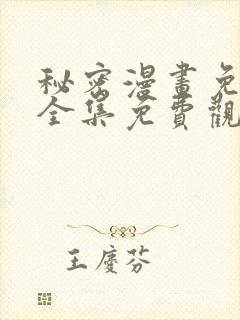 秘密漫畫免
全集免費觀
王慶芬